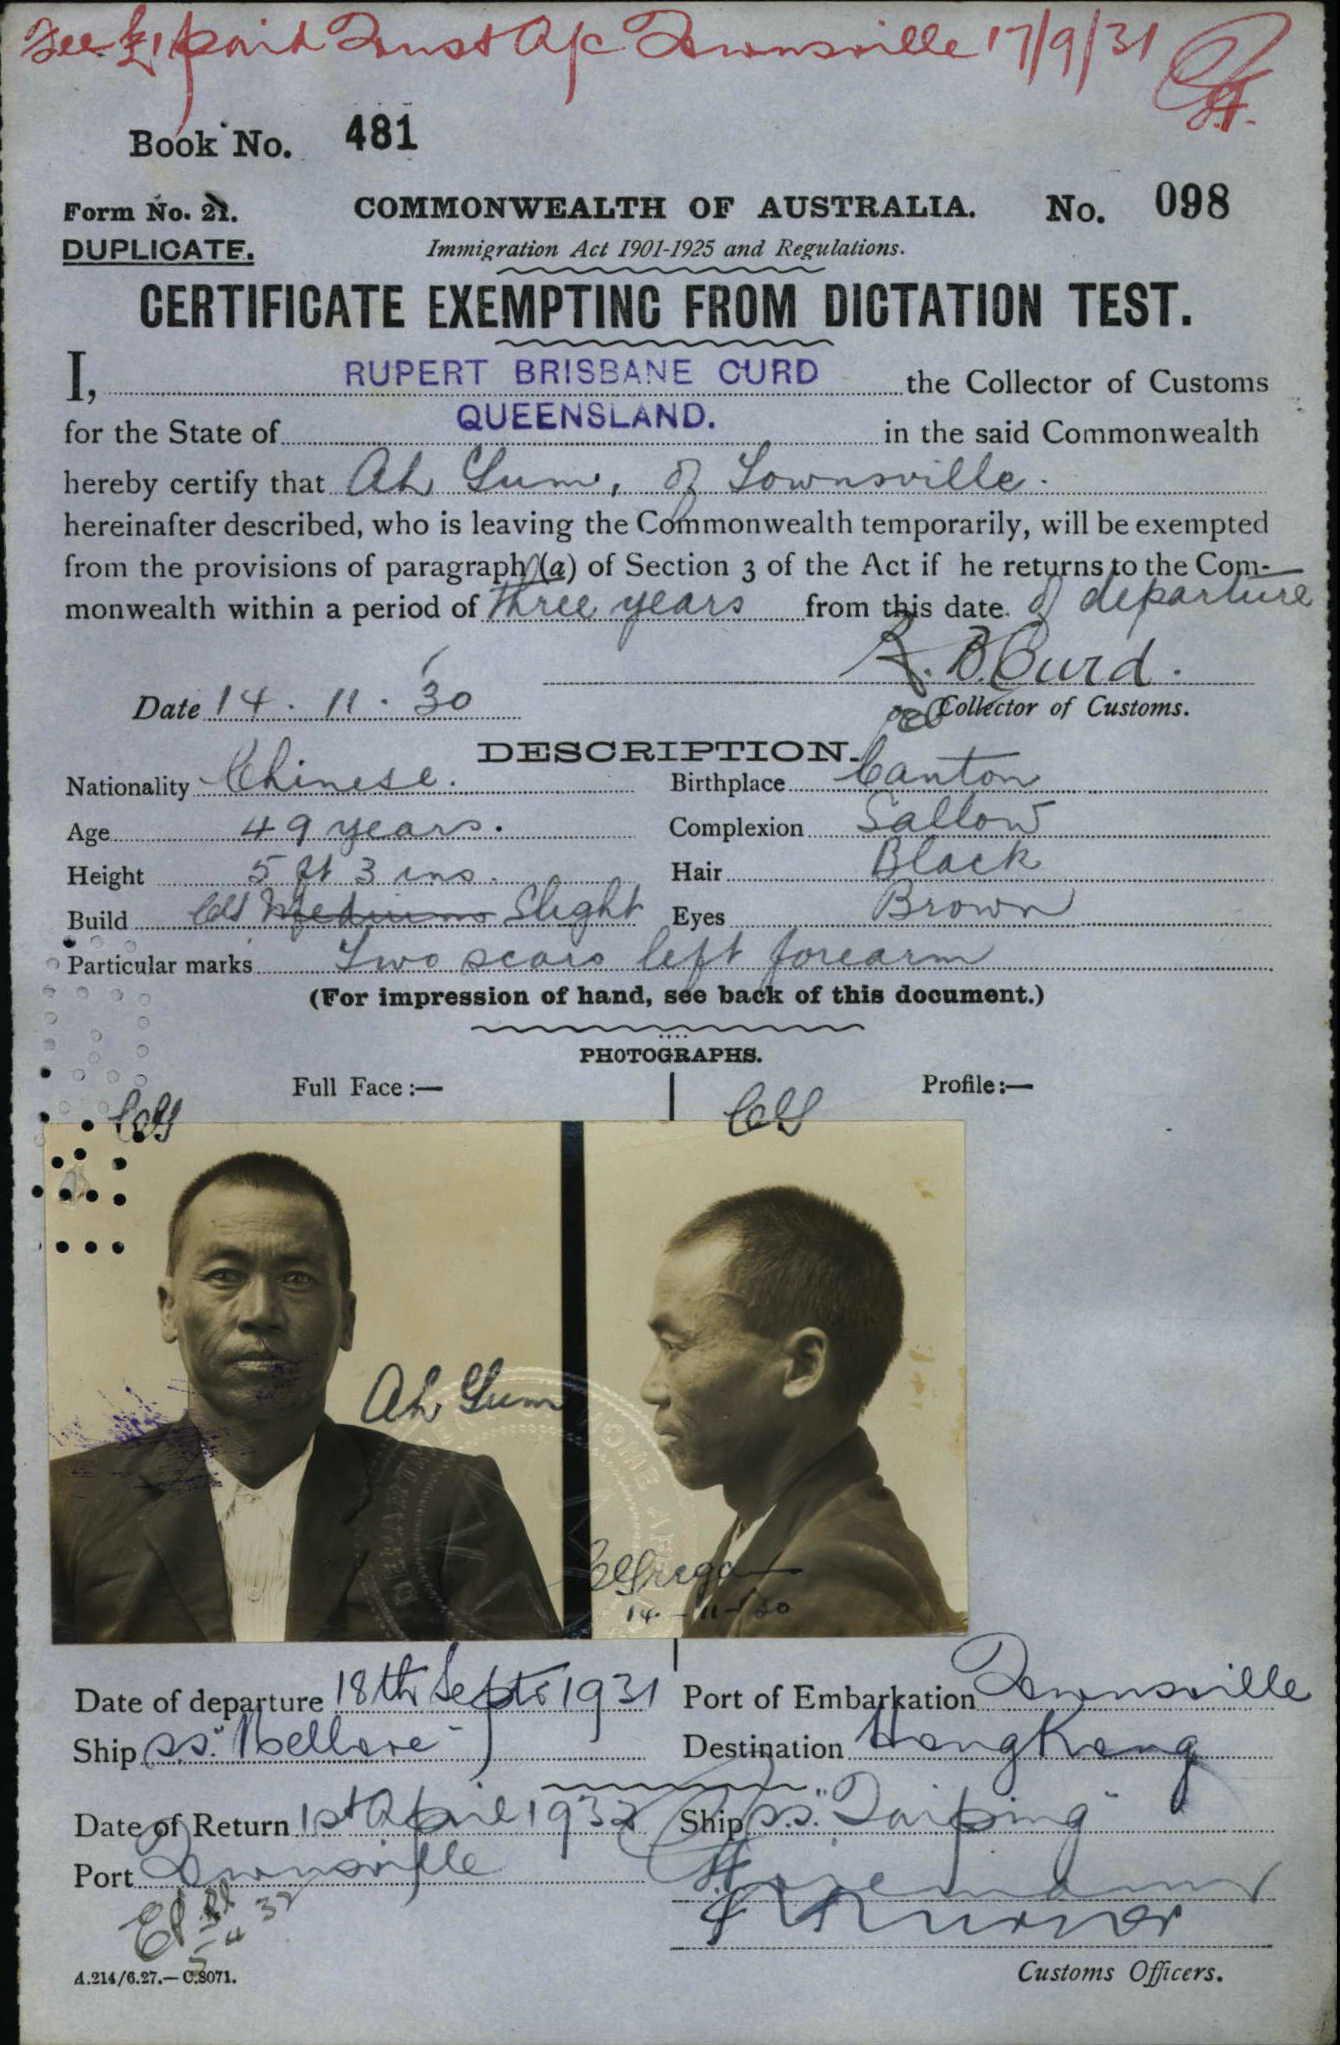 Fee £1 paid Trust A/c Townsville 17/9/31
Book No. 481
Form No. 21. COMMONWEALTH OF AUSTRALIA. No. 098
DUPLICATE. Immigration Act 1901-1925 and Regulations.
CERTIFICATE EXEMPTING FROM DICTATION TEST.
I, RUPERT BRISBANE CURD the Collector of Customs
for the State of QUEENSLAND. in the said Commonwealth
hereby certify that Ah Gum, of Townsville.
hereinafter described, who is leaving the Commonwealth temporarily, will be exempted
from the provisions of paragraph (a) of Section 3 of the Act if he returns to the Com-
monwealth within a period of three years from this date of departure
R. B. Curd.
Date 14.11.30 Collector of Customs.
DESCRIPTION.
Nationality Chinese. Birthplace Canton
Age 49 years. Complexion Sallow
Height 5 ft 3 ins. Hair Black
Build Medium Slight Eyes Brown
Particular marks Two scars left forearm
(For impression of hand, see back of this document.)
PHOTOGRAPHS.
Full Face:— Profile:—
Ah Gum
14-11-30
Date of departure 18th Sept 1931 Port of Embarkation Townsville
Ship ss. "Nellore" Destination Hong Kong
Date of Return 1st April 1932 Ship s.s. "Taiping"
Port Townsville
A.214/6.27.—C.8071. Customs Officers.